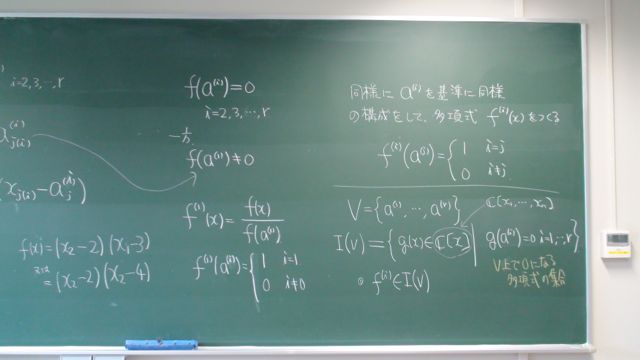 i=2,3,…,r
a^{(i)}_{j(i)}
x_{j(i)}-a^{(i)}_{j(i)})
f(x)=(x_2-2)(x_1-3)
=(x_2-2)(x_2-4)
f(a^{(i)})=0
i=2,3,…,r
一方
f(a^{(1)})≠0
f^{(1)}(x)=f(x)/f(a^{(1)})
f^{(1)}(a^{(i)})={1 i=1
0 i≠0
同様に a^{(i)} を基準に同様
の構成をして、多項式 f^{(i)}(x) をつくる
f^{(i)}(a^{(j)})={1 i=j
0 i≠j.
V={a^{(1)},…,a^{(r)}}
ℂ[x_1,…,x_n]
I(V)={g(x)∈ℂ[x] | g(a^{(i)})=0 i=1,…,r}
V上で0になる
多項式の集合
f^{(i)}∈I(V)